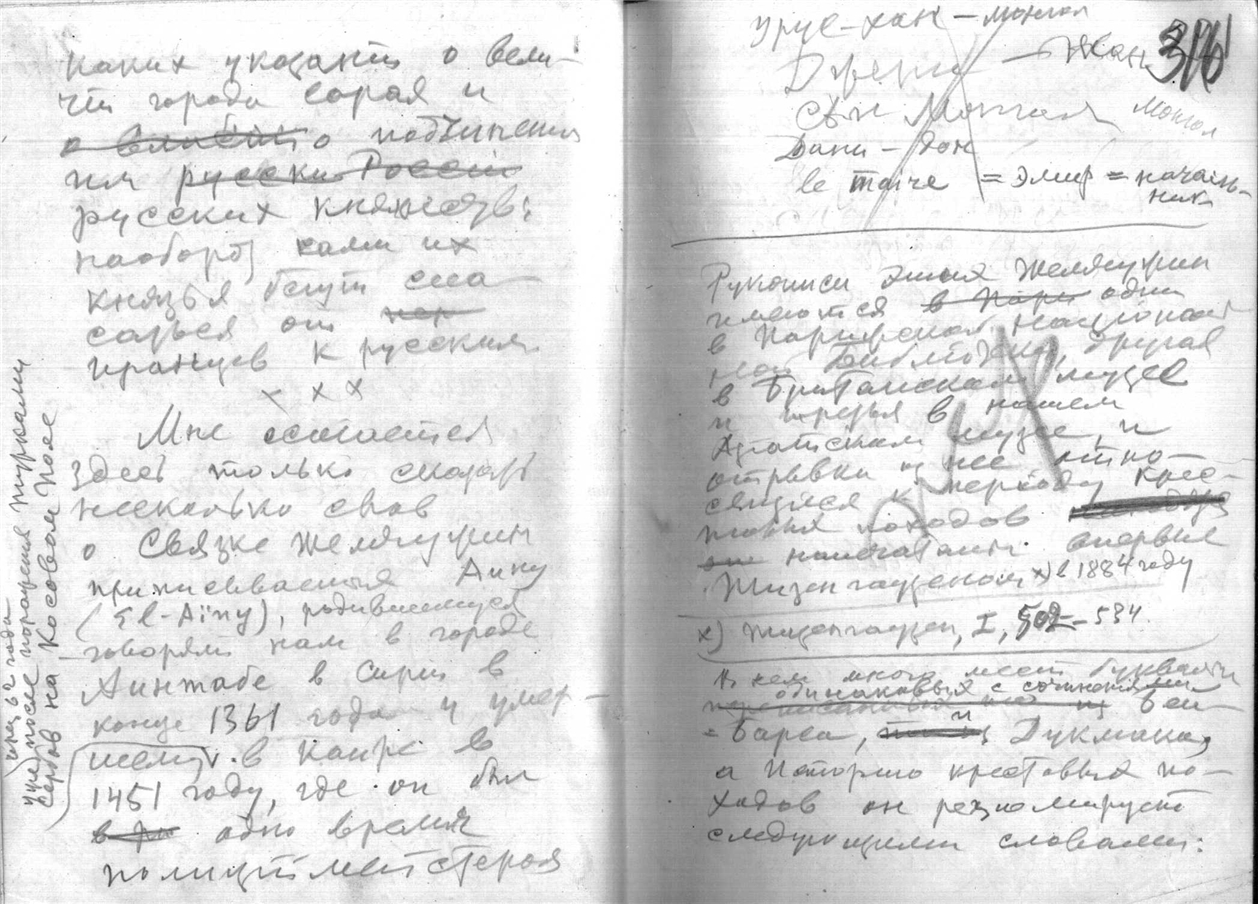 каких указаній о вели-
чіи города Сарая и
о подчинении
им
русских княжеств:
наоборот, сами их
князья бегут спа-
саться от
иранцев к русским.
× × ×
Мне остается
здесь только сказать
несколько слов
о Связке Жемчужин
приписываемая Аину
(El-Aïny), родившемуся
говорят нам в городе
Аинтабе в Сирии в
конце 1361 года и умер-
шему в Каире в
1451 году, где он был
одно время
полицтмейстером
через 62 года
уже после поражения турками
Сербов на Косовом Поле
Урус-хан – монгол
Хан
сын Монгол
монгол
Дани – дон
= эмир = началь-
ник
Рукописи Жемчужин
имеются одна
в Парижской националь-
ной Библіотеке, другая
в Британском музее
и третья в нашем
Азиатском музее, и
отрывки из нее отно-
сящиеся к периоду Крес-
товых походов
напечатаны впервые
Тизенгаузеном ×) в 1884 году
×) Тизенгаузен, I, 502–534.
В нем много мест буквально
одинаковых с сочинениями
Бей-
=Барса, и Дукмака,
а Историю крестовых по-
ходов он резюмирует
следующими словами: